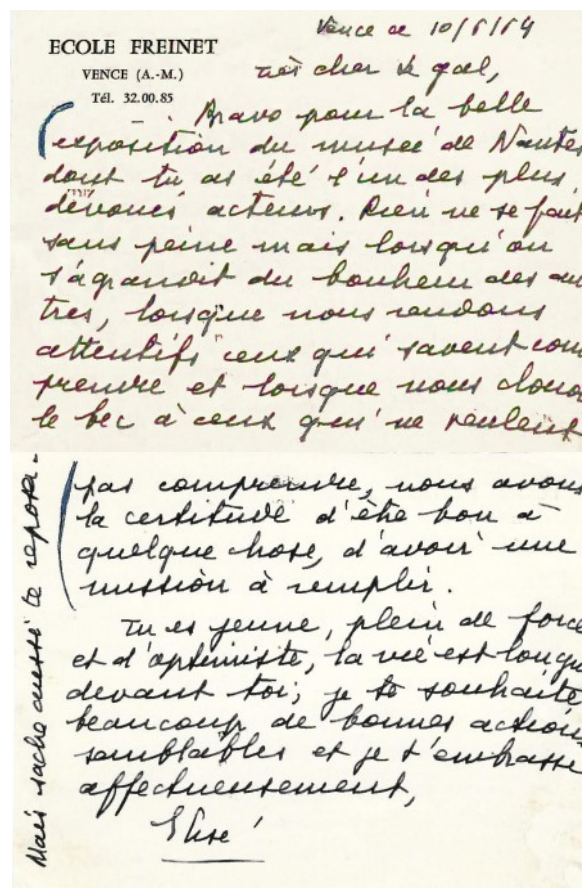 Vence ce 10/6/64
ECOLE FREINET
VENCE (A.-M.)
Tél. 32.00.85
très cher Le gal,
Bravo pour la belle
exposition du musée de Nantes
dont tu as été l'un des plus
dévoués acteurs. Rien ne se fait
sans peine mais lorsqu'on
s'agrandit du bonheur des au
tres, lorsque nous rendons
attentifs ceux qui savent com
prendre et lorsque nous clouons
le bec à ceux qui ne veulent
pas comprendre, nous avons
la certitude d'être bon à
quelque chose, d'avoir une
mission à remplir.
Tu es jeune, plein de force
et d'optimiste, la vie est longue
devant toi, je te souhaite
beaucoup de bonnes actions
semblables et je t'embrasse
affectueusement,
Elise
Mais sache aussi te reposer.